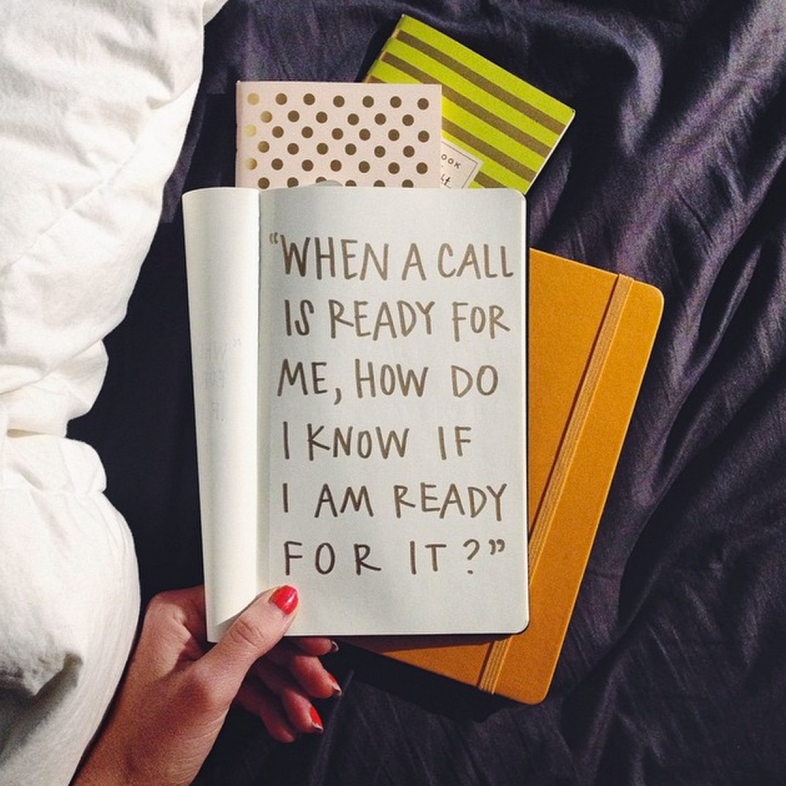 OOK
"WHEN A CALL
IS READY FOR
ME, HOW DO
I KNOW IF
I AM READY
FOR IT?"